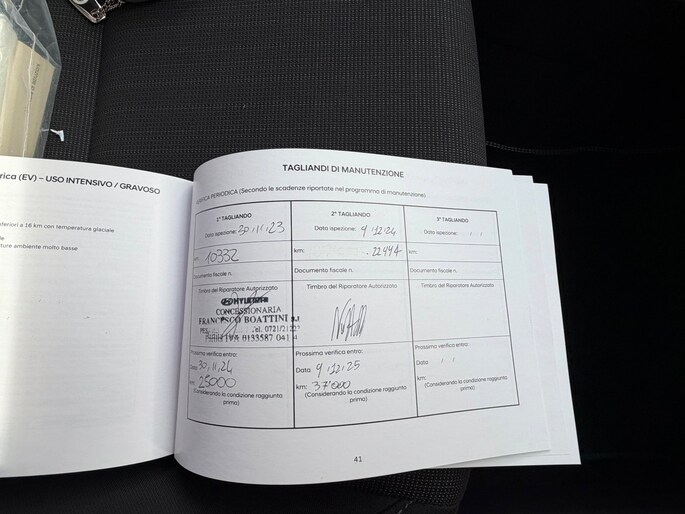 rica (EV) – USO INTENSIVO / GRAVOSO
feriori a 16 km con temperatura glaciale
ture ambiente molto basse
TAGLIANDI DI MANUTENZIONE
VERIFICA PERIODICA (Secondo le scadenze riportate nel programma di manutenzione)
1° TAGLIANDO
Data ispezione: 30/11/23
km: 10332
Documento fiscale n.
Timbro del Riparatore Autorizzato
HYUNDAI
CONCESSIONARIA
FRANCESCO BOATTINI
Tel. 0721/2
P.IVA 0133587 041
Prossima verifica entro:
Data 30/11/24
km: 25000
(Considerando la condizione raggiunta
prima)
2° TAGLIANDO
Data ispezione: 9/12/24
km: 22494
Documento fiscale n.
Timbro del Riparatore Autorizzato
Prossima verifica entro:
Data 9/12/25
km: 37'000
(Considerando la condizione raggiunta
prima)
3° TAGLIANDO
Data ispezione: / /
km:
Documento fiscale n.
Timbro del Riparatore Autorizzato
Prossima verifica entro:
Data / /
km:
(Considerando la condizione raggiunta
prima)
41